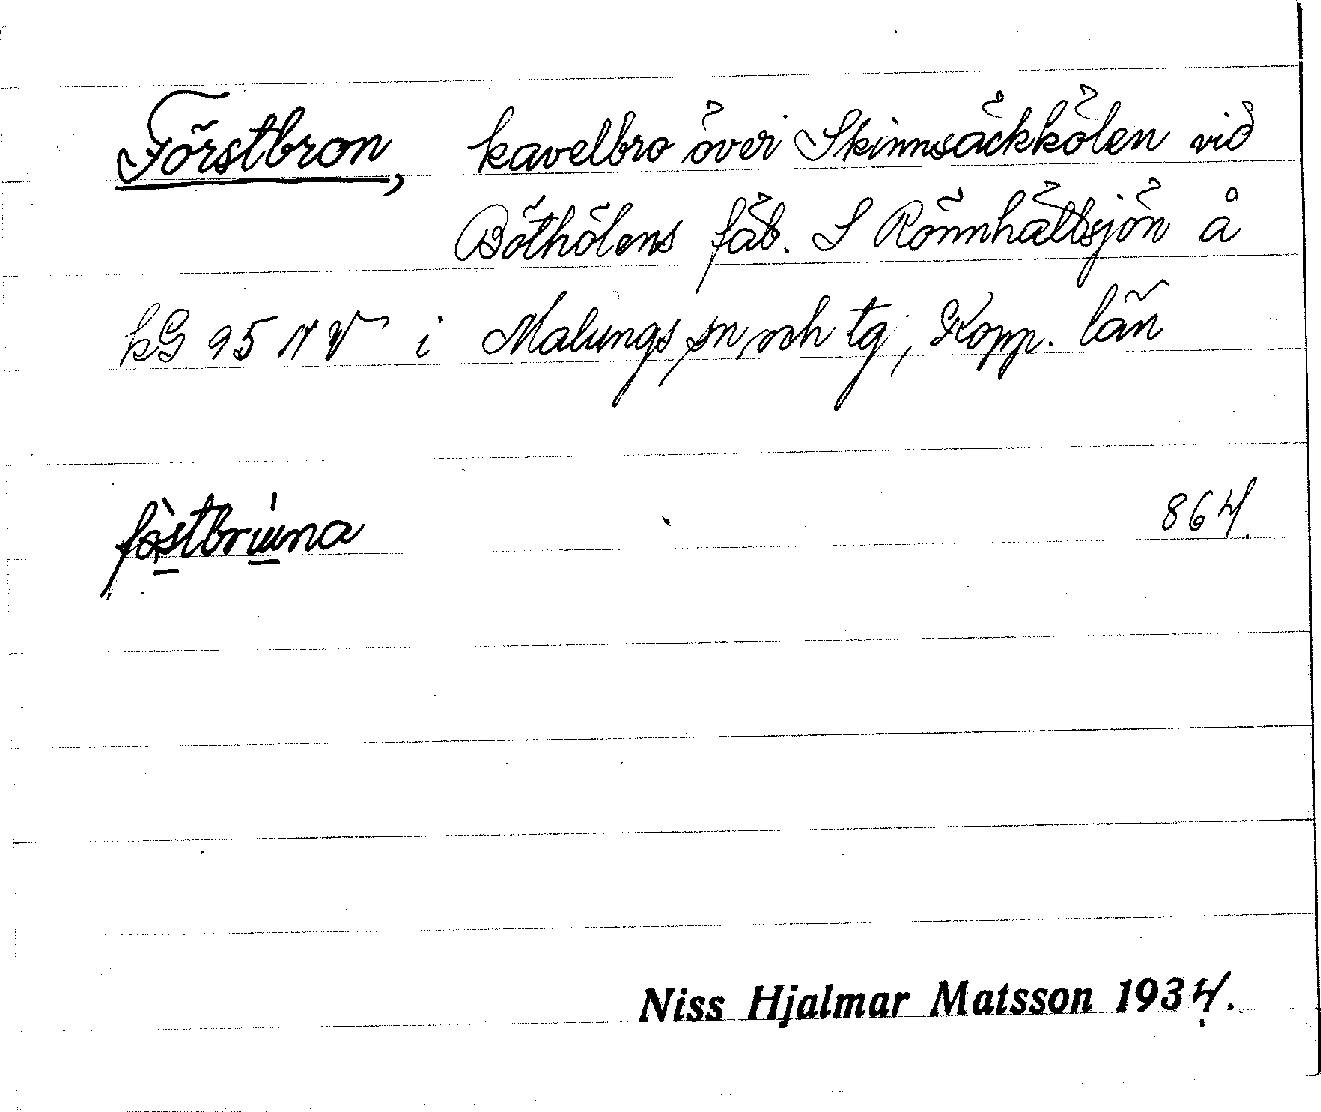 Förstbron, kavelbro över Skinnsäckkölen vid
Böthölens fäb. S Rönnhättsjön å
kG 95 NV i Malungs sn och tg, Kopp. län
fòstbrúuna 864.
Niss Hjalmar Matsson 1934.